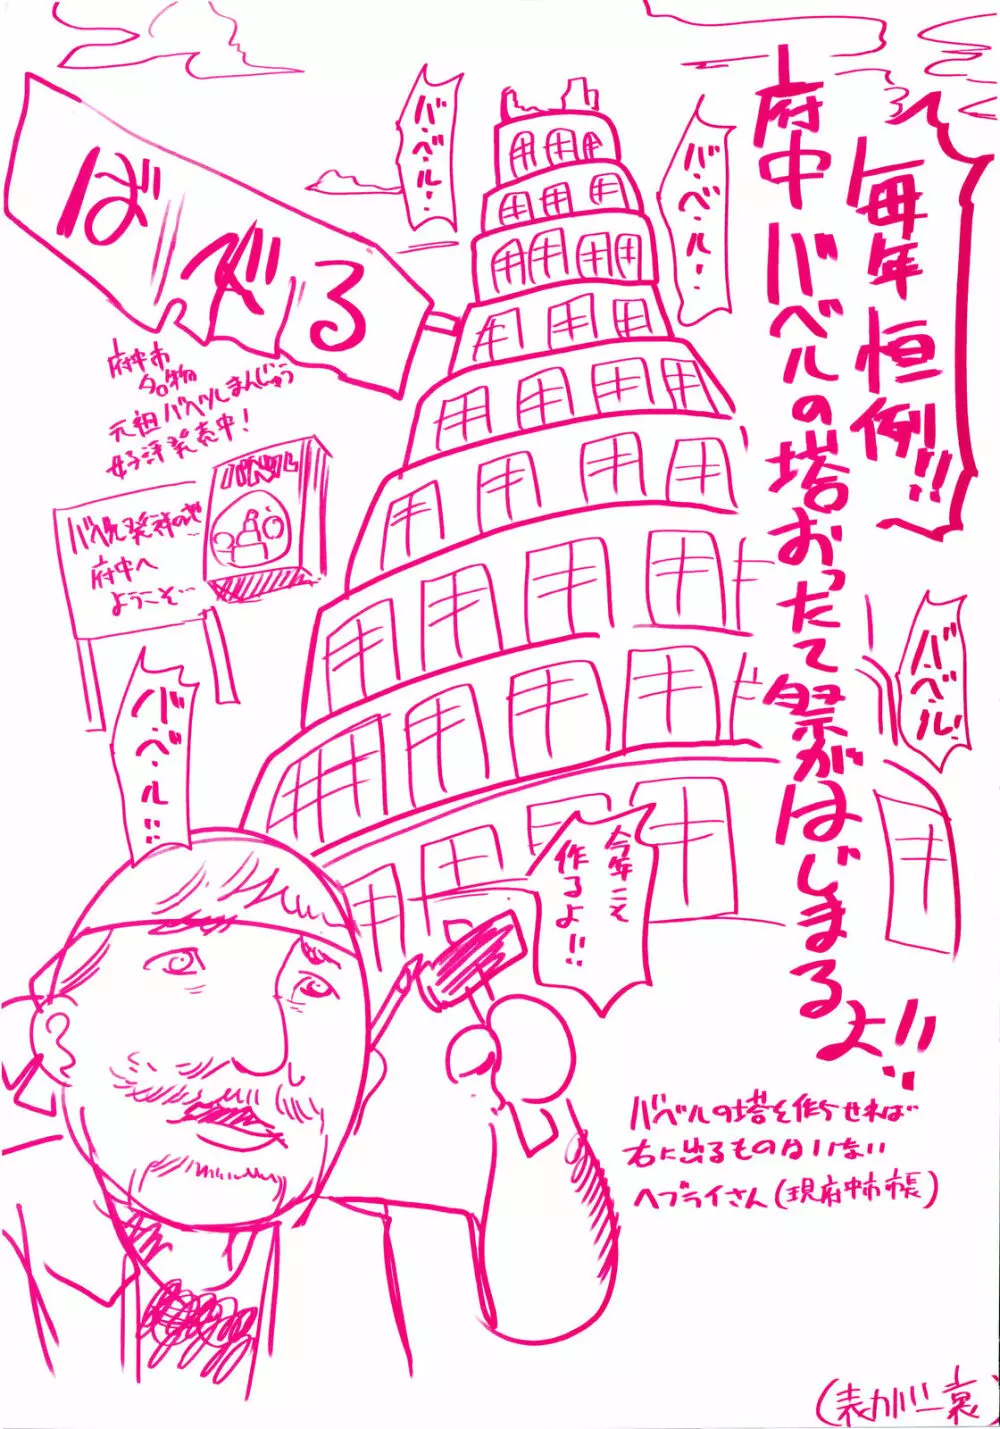 毎年恒例!!
府中バベルの塔おったて祭がはじまるよ!!
バ・ベ・ル・・
バ・ベ・ル・・
ばべる
府中市
名物
元祖バベルまんじゅう
好評発売中!
バベル
バベル発祥の地
府中へ
ようこそ…
バ・ベ・ル!
バ・ベ・ル…
今年こそ
作るよ!!
バベルの塔を作らせれば
右に出るものはいない
ヘブライさん(現府中市市長)
(表カバー裏)